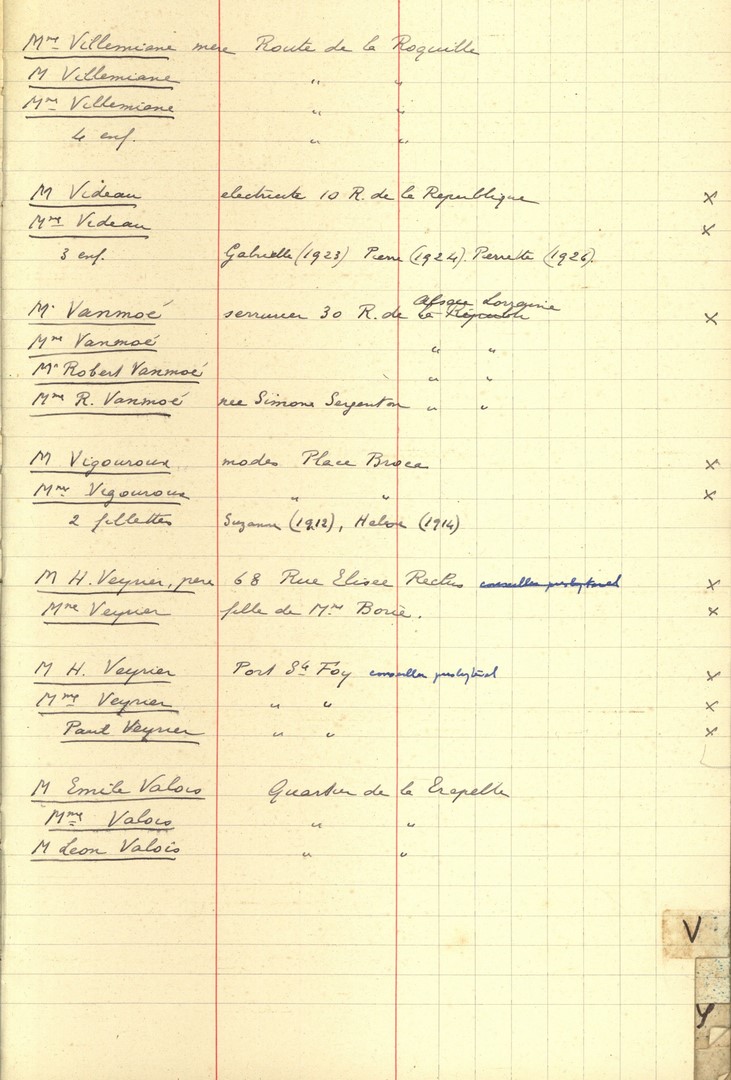 Mme Villemiane mere Route de la Roquille
M Villemiane " "
Mme Villemiane " "
4 enf. " "
M Videau electricite 10 R. de la Republique x
Mme Videau x
3 enf. Gabrielle (1923) Pierre (1924). Perrette (1926).
Alsace Lorraine
Mr Vanmoé serrurier 30 R. de x
Mme Vanmoé " "
Mr Robert Vanmoé " "
Mme R. Vanmoé nee Simone " "
M Vigouroux modes Place Broca x
Mme Vigouroux " " x
2 fillettes Suzanne (1912), (1914)
M H. Veyrier, pere 68 Rue Elisee Reclus conseiller presbyteral x
Mme Veyrier fille de Mme Borie. x
M H. Veyrier Port Ste Foy conseiller presbyteral x
Mme Veyrier " " x
Paul Veyrier " " x
M Emile Valois Quartier de la
Mme Valois " "
M Leon Valois " "
V
Y